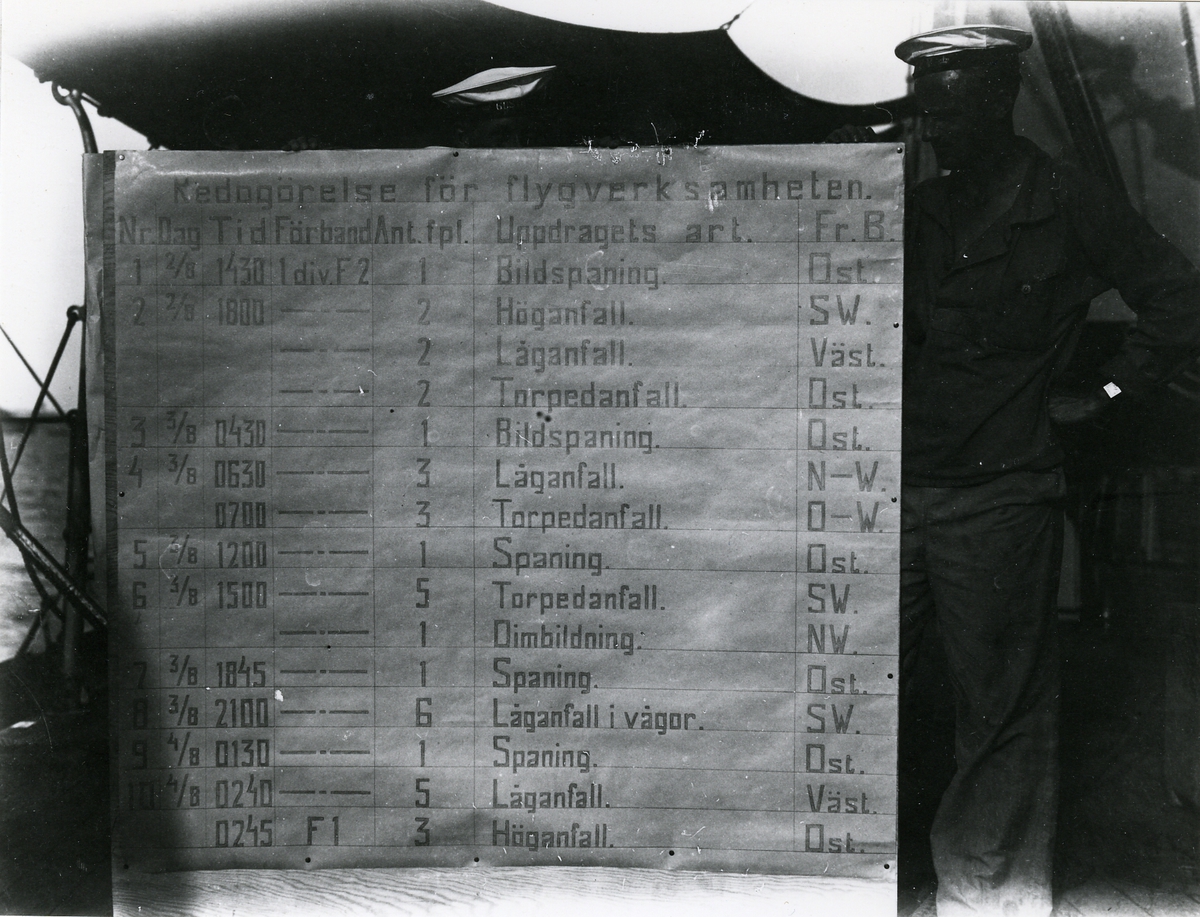 Redogörelse för flygverksamheten.
Nr. Dag Tid Förband Ant. fpl. Uppdragets art. Fr. B.
1 2/8 1430 1 div. F 2 1 Bildspaning. Ost.
2 2/8 1800 —·— 2 Höganfall. SW.
—·— 2 Låganfall. Väst.
—·— 2 Torpedanfall. Ost.
3 3/8 0430 —·— 1 Bildspaning. Ost.
4 3/8 0630 —·— 3 Låganfall. N-W.
0700 —·— 3 Torpedanfall. O-W.
5 3/8 1200 —·— 1 Spaning. Ost.
6 3/8 1500 —·— 5 Torpedanfall. SW.
—·— 1 Dimbildning. NW.
7 3/8 1845 —·— 1 Spaning. Ost.
8 3/8 2100 —·— 6 Låganfall i vågor. SW.
9 4/8 0130 —·— 1 Spaning. Ost.
10 4/8 0240 —·— 5 Låganfall. Väst.
0245 F 1 3 Höganfall. Ost.